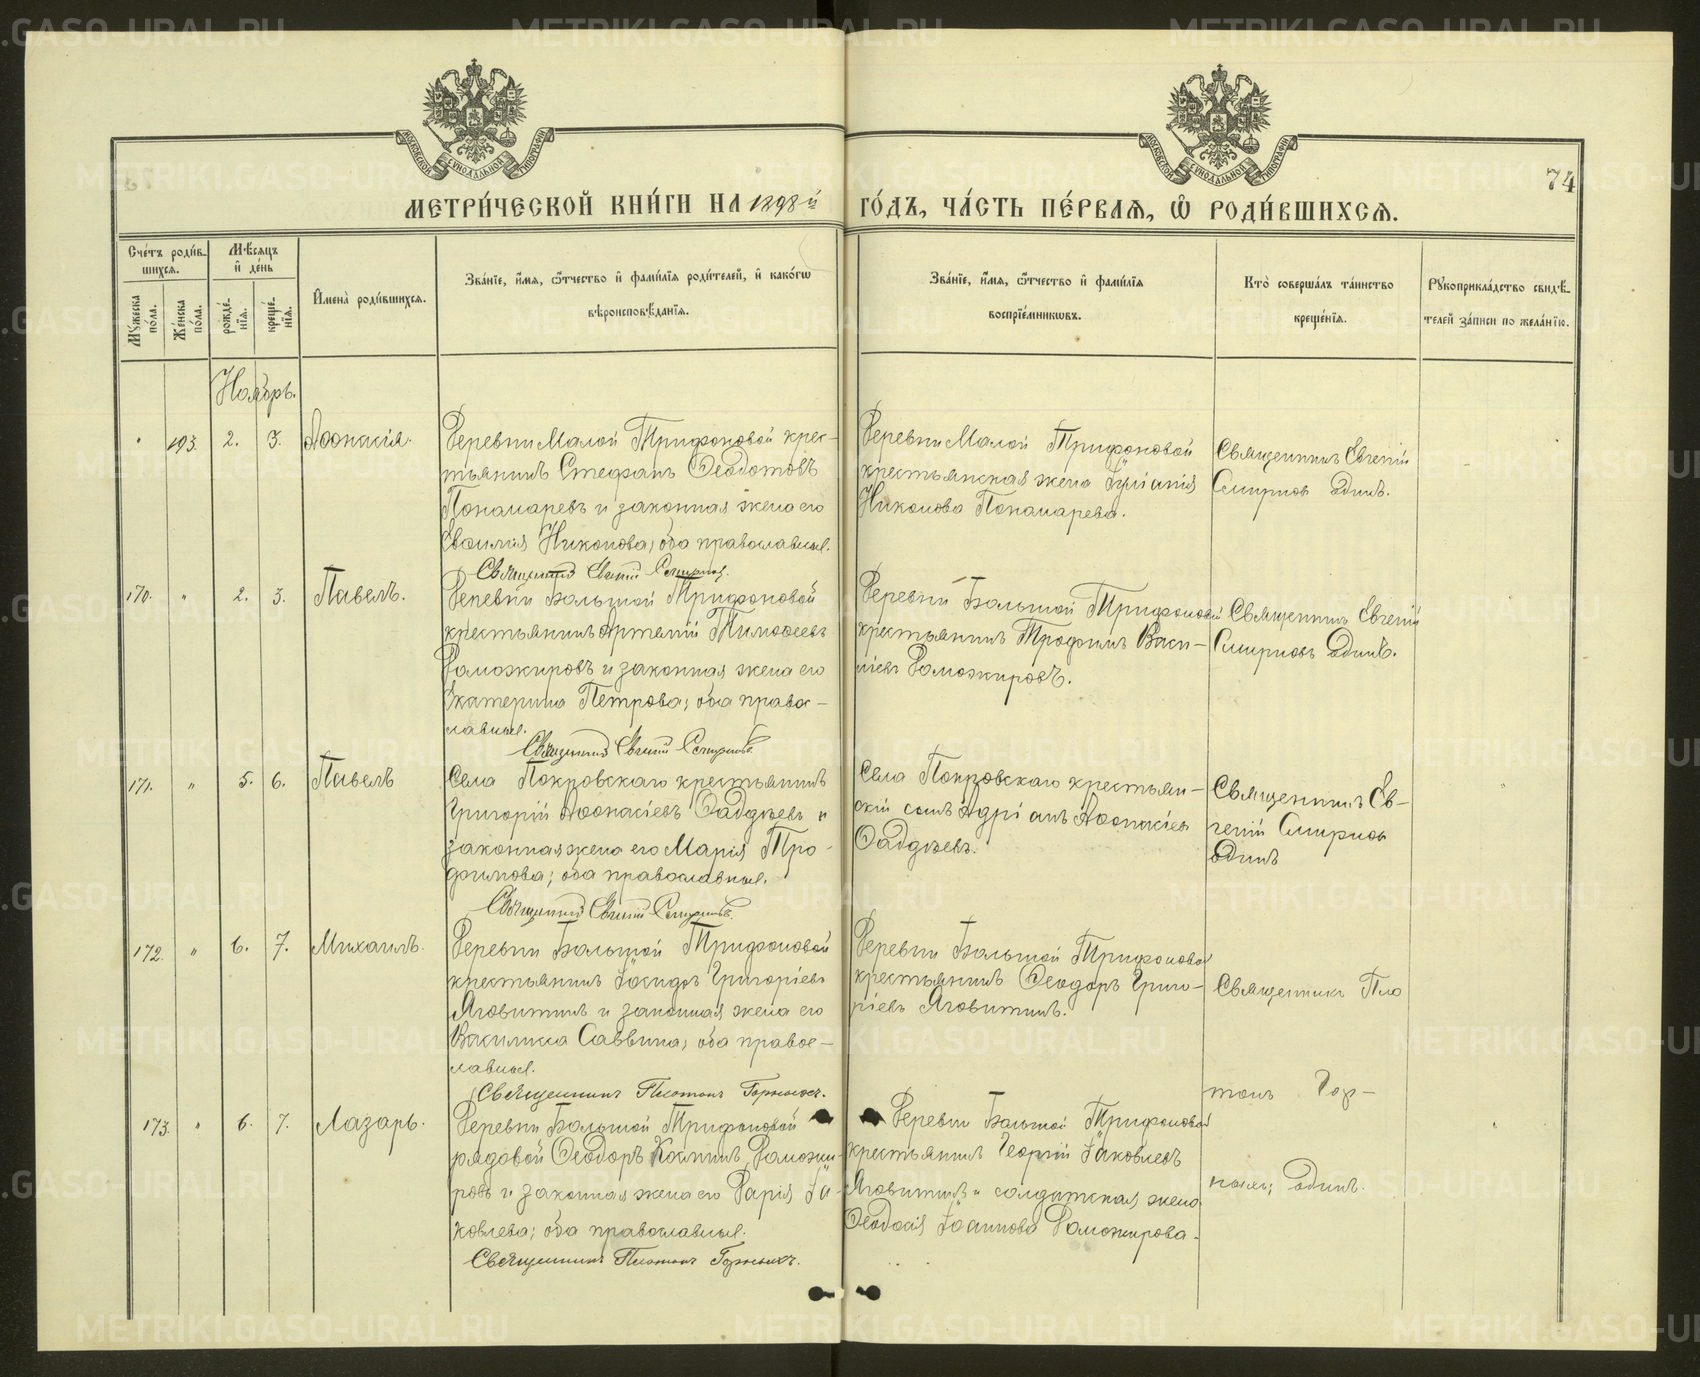 МЕТРИ́ЧЕСКОЙ КНИ́ГИ НА 1898й ГО́ДЪ, ЧА́СТЬ ПЕ́РВАѦ, Ѽ РОДИ́ВШИХСѦ.
74
Сче́тъ роди́в-
шихсѧ.
Мꙋ́жеска
по́ла.
Же́нска
по́ла.
Мѣ́сѧцъ
и҆ де́нь
рожде́-
нїѧ.
креще́-
нїѧ.
И҆мена̀ роди́вшихсѧ.
Зва́нїе, и҆́мѧ, ѻ҆́тчество и҆ фами́лїѧ роди́телей, и҆ како́гѡ
вѣроисповѣ́данїѧ.
Зва́нїе, и҆́мѧ, ѻ҆́тчество и҆ фами́лїѧ
воспрїе́мникѡвъ.
Кто̀ соверша́лъ та́инство
креще́нїѧ.
Рꙋкоприкла́дство свидѣ́-
телей за́писи по жела́нїю.
Ноябрь.
" 193. 2. 3. Аѳонасія.
Деревни Малой Трифоновой крес-
тьянинъ Стефанъ Ѳеодотовъ
Понамаревъ и законная жена его
Никонова; оба православные.
Священникъ Евгеній Смирнов.
Деревни Малой Трифоновой
крестьянская жена Іуліанія
Никонова Понамарева.
Священникъ Евгеній
Смирнов один.
170. " 2. 3. Павелъ.
Деревни Большой Трифоновой
крестьянинъ Артемій Тимоѳеевъ
Доможировъ и законная жена его
Екатерина Петрова; оба право-
славные.
Священникъ Евгеній Смирновъ
Деревни Большой Трифоновой
крестьянинъ Трофимъ Васи-
ліевъ Доможировъ.
Священникъ Евгеній
Смирновъ одинъ.
171. " 5. 6. Павелъ
Села Покровскаго крестьянинъ
Григорій Аѳонасіевъ Ѳаддѣевъ и
законная жена его Марія Тро-
фимова; оба православные.
Священникъ Евгеній Смирновъ.
Села Покровскаго крестьян-
скій сынъ Адріанъ Аѳонасіев
Ѳаддѣевъ.
Священникъ Ев-
геній Смирнов
один
172. " 6. 7. Михаилъ.
Деревни Большой Трифоновой
крестьянинъ Іосифъ Григоріевъ
Яговитинъ и законная жена его
Василиса Саввина; оба право-
славные.
Священникъ Платонъ Горныхъ.
Деревни Большой Трифоновой
крестьянинъ Ѳеодоръ Григо-
ріевъ Яговитинъ.
Священникъ Пла
тонъ Гор-
ныхъ; одинъ.
173. " 6. 7. Лазарь.
Деревни Большой Трифоновой
рядовой Ѳеодоръ Космин Доможи-
ровъ и законная жена его Дарія Іа-
ковлева; оба православные.
Священникъ Платонъ Горныхъ.
Деревни Большой Трифоновой
крестьянинъ Георгій Іаковлевъ
Яговитинъ и солдатская жена
Ѳеодосія Іоаннова Доможирова.
METRIKI.GASO-URAL.RU